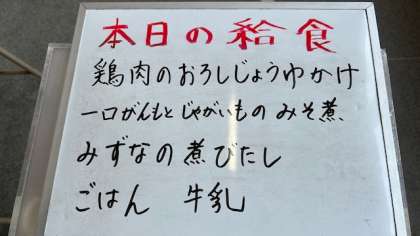 本日の給食
鶏肉のおろしじょうゆかけ
一口がんもとじゃがいものみそ煮
みずなの煮びたし
ごはん 牛乳